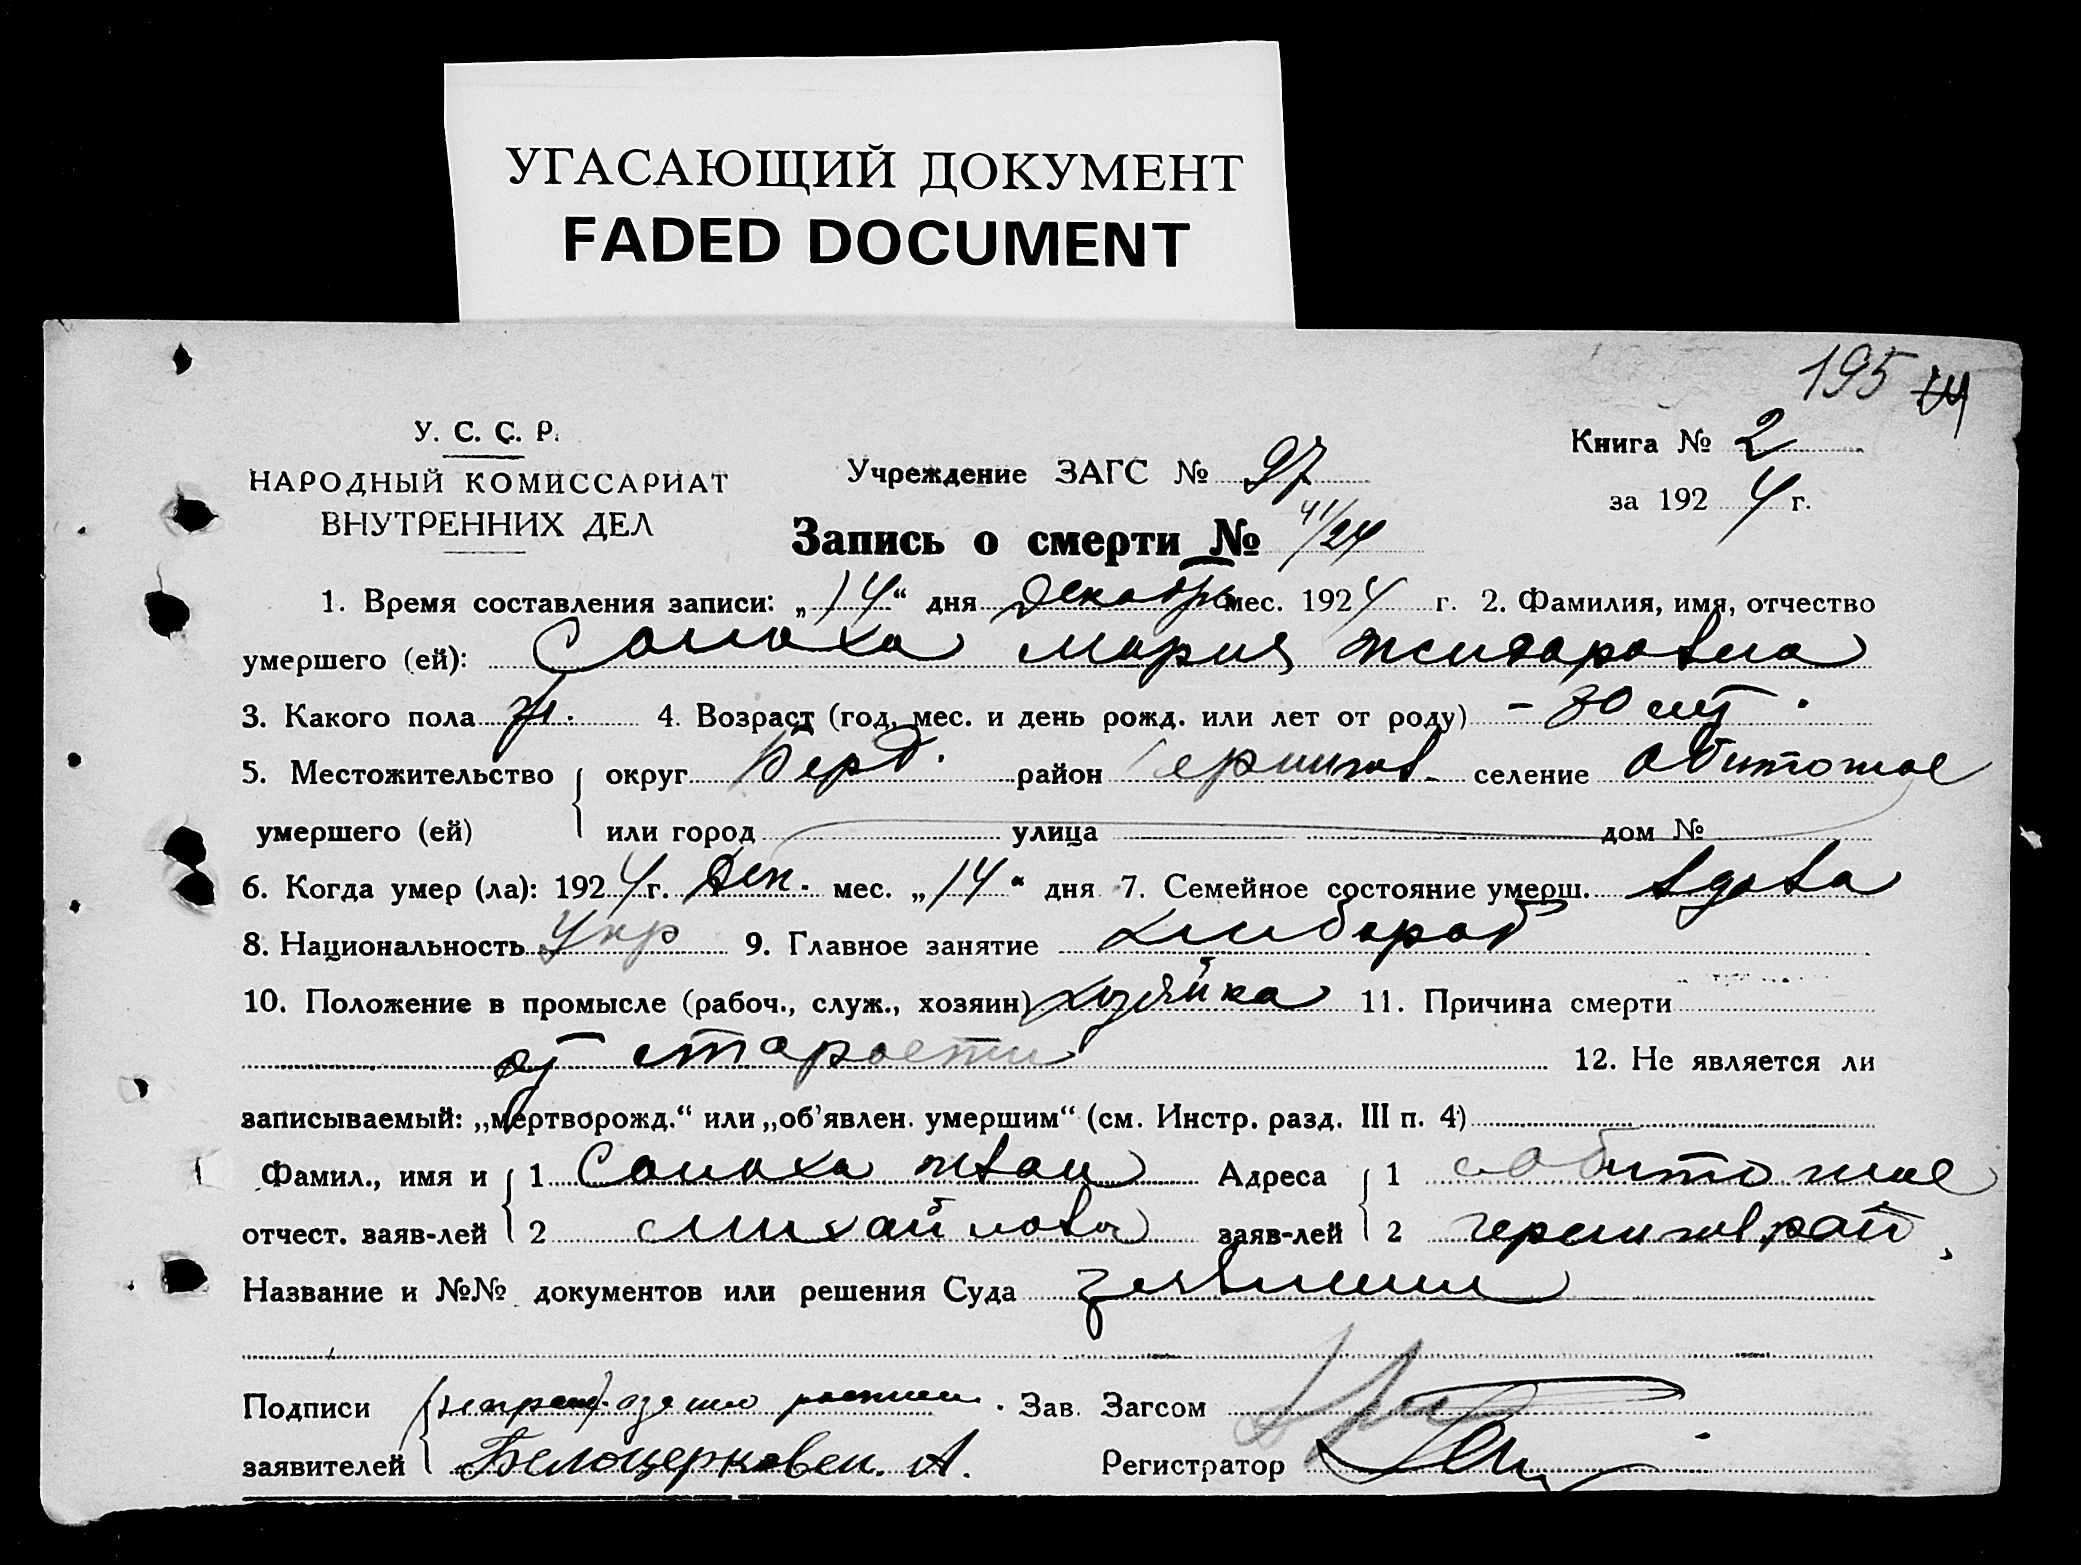 УГАСАЮЩИЙ ДОКУМЕНТ
FADED DOCUMENT
195
У. С. С. Р.
НАРОДНЫЙ КОМИССАРИАТ
ВНУТРЕННИХ ДЕЛ
Учреждение ЗАГС № 97
Книга № 2
за 1924 г.
Запись о смерти № 41/24
1. Время составления записи: „14“ дня Декабрь мес. 1924 г. 2. Фамилия, имя, отчество
умершего (ей): Солоха Мария
3. Какого пола ж. 4. Возраст (год, мес. и день рожд. или лет от роду) – 80 лет.
5. Местожительство округ Берд. район Черниговс. селение Обиточное
умершего (ей) или город улица дом №
6. Когда умер (ла): 1924 г. Дек. мес. „14“ дня 7. Семейное состояние умерш. вдова
8. Национальность Укр 9. Главное занятие хлибороб
10. Положение в промысле (рабоч., служ., хозяин) хозяйка 11. Причина смерти
от старости 12. Не является ли
записываемый: „мертворожд.“ или „об'явлен. умершим“ (см. Инстр. разд. III п. 4)
Фамил., имя и 1 Солоха Иван Адреса 1 с Обиточное
отчест. заяв-лей 2 Михайлович заяв-лей 2 Черниговс рай.
Название и №№ документов или решения Суда
Подписи Зав. Загсом
заявителей Белоцерковец. А. Регистратор